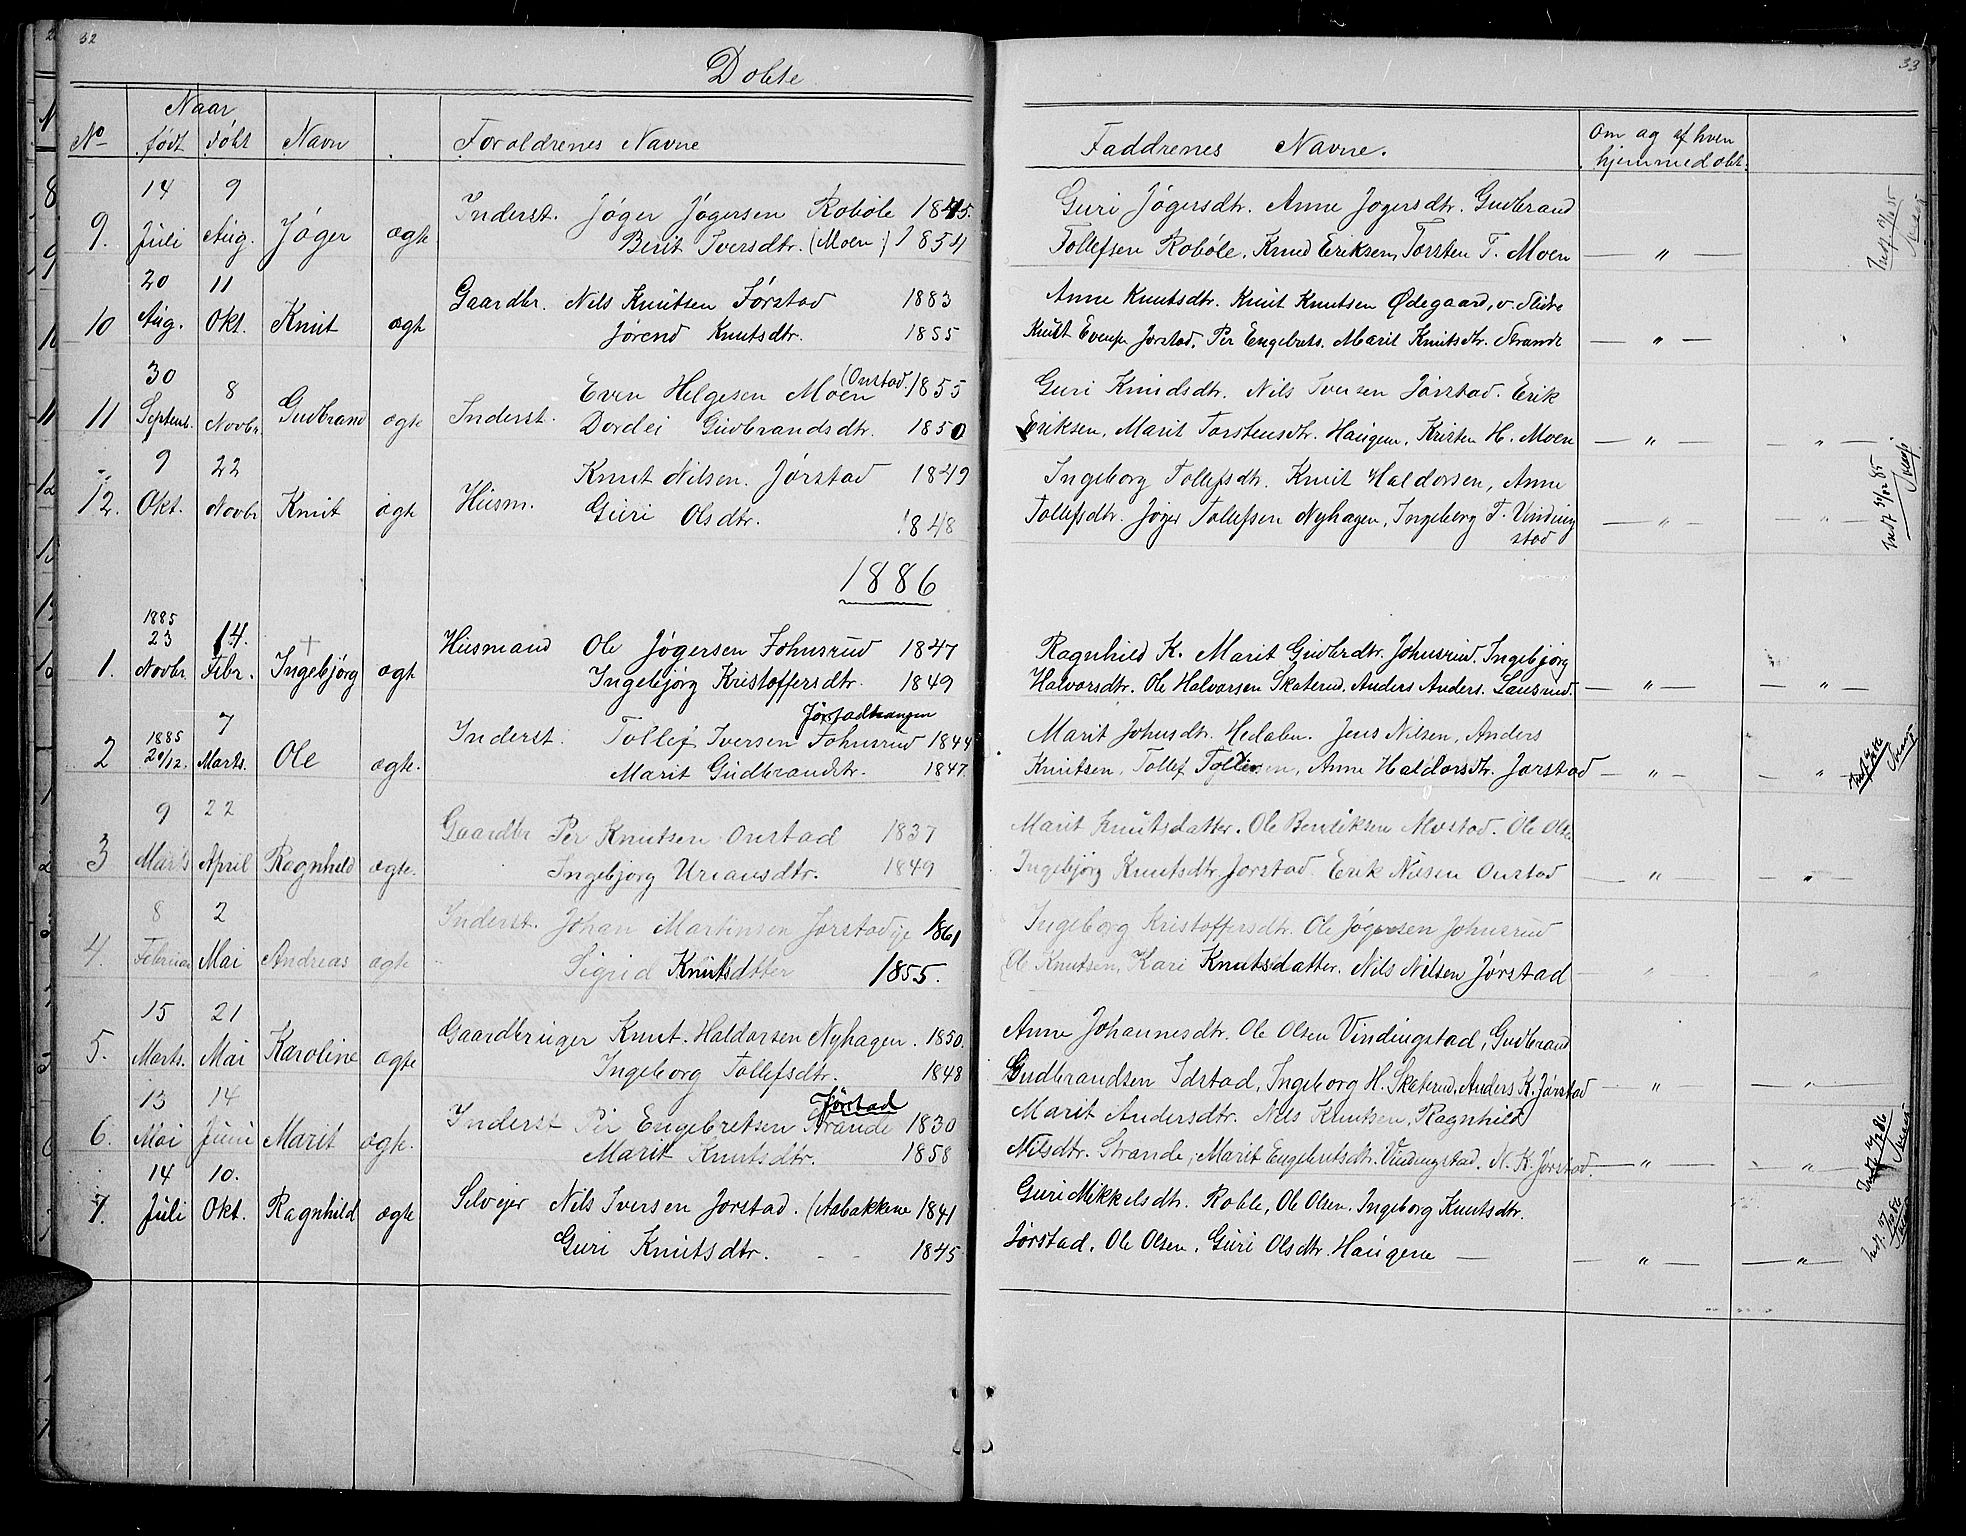 32
Døbte
Naar
No født døbt Navn Foraldrenes Navne
14 9
9. Juli Aug. Jøger ægte Inderst. Jøger Jøgersen Robøle 1845.
Berit Iversdtr. (Moen) 1854
20 11
10 Aug. Okt. Knut ægte Gaardbr. Nils Knutsen Jørstad 1883
Jørend Knutsdtr. 1855
30 8 (Onstad.)
11 Septemb. Novbr. Gudbrand ægte Inderst. Even Helgesen Moen 1855
Dordei Gudbrandsdtr. 1850
9 22
12. Okt. Novbr Knut ægte Husm. Knut Nilsen. Jørstad 1849
Guri Olsdtr. 1848
1886
1885
23 14.
1. Novbr. Febr. Ingebjørg ægte Husmand Ole Jøgersen Johnsrud 1847
Ingebjørg Kristoffersdtr. 1849
7 Jørstadhaugen
1885
2 29/12. Marts. Ole ægte. Inderst. Tollef Iversen Johnsrud 1844
Marit Gudbrandsdtr. 1847.
9 22
3 Marts April Ragnhild ægte. Gaardbr Per Knutsen Onstad 1837
Ingebjørg Uriansdtr. 1849
8 2
4. Februar Mai Andreas ægte Inderst. Johan Martinsen Jørstadeje 1861
Sigrid Knutsdatter 1855.
15 21
5. Marts. Mai Karoline ægte Gaardbruger Knut. Haldorsen Nyhagen. 1850.
Ingeborg Tollefsdtr. 1848
13 14 Jørstad
6. Mai Juni Marit ægte. Inderst Per Engebretsen Strande 1830
Marit Knutsdtr. 1858
14 10.
7. Juli Okt. Ragnhild ægte Selvejer Nils Iversen Jorstad. (Aabakkene 1841
Guri Knutsdtr. 1845
33
Faddrenes Navne. Om og af hvem
hjemmedøbt.
Guri Jøgersdtr. Anne Jøgersdtr. Gudbrand
Tollefsen Robøle. Knud Eriksen, Torsten T. Moen — " —
Anne Knutsdtr. Knut Knutsen Ødegaard, v. Slidre
Knut Evens. Jørstad. Per Engebrets. Marit Knutsdtr. Strande — " —
Guri Knudsdtr. Nils Iversen Jørstad. Erik
Eriksen, Marit Torstensdtr. Haugen, Kristen H. Moen — " — — " —
Ingeborg Tollefsdtr. Knut Haldorsen, Anne
Tollefsdtr. Jøger Tollefsen Nyhagen, Ingeborg T. Vinding
stad — " — — " —
Ragnhild K. Marit Gudbrdtr. Johnsrud. Ingebjørg
Halvorsdtr. Ole Halvorsen Skaterud. Anders Anders. Lausrud. — " — — " —
Marit Johnsdtr. Hedalen. Jens Nilsen, Anders
Knutsen, Tollef Tollefsen, Anne Haldorsdtr. Jørstad — " — — "
Marit Knutsdatter. Ole Bentiksen Møstad. Ole Ols.
Ingebjørg Knutsdtr. Jorstad. Erik Nilsen Onstad — " — — " —
Ingeborg Kristoffersdtr. Ole Jøgersen Johnsrud
Ole Knutsen, Kari Knutsdatter. Nils Nilsen Jørstad " "
Anne Johannesdtr. Ole Olsen Vindingstad, Gudbrand
Gudbrandsen Idstad, Ingeborg H. Skaterud, Anders K. Jørstad — " — — " —
Marit Andersdtr. Nils Knutsen, Ragnhild
Nilsdtr. Strande, Marit Engebretsdtr. Vindingstad. N. K. Jørstad. — " — — " —
Guri Mikkelsdtr. Roble, Ole Olsen. Ingeborg Knutsdtr.
Jørstad. Ole Olsen. Guri Olsdtr. Haugene — — " — — " —